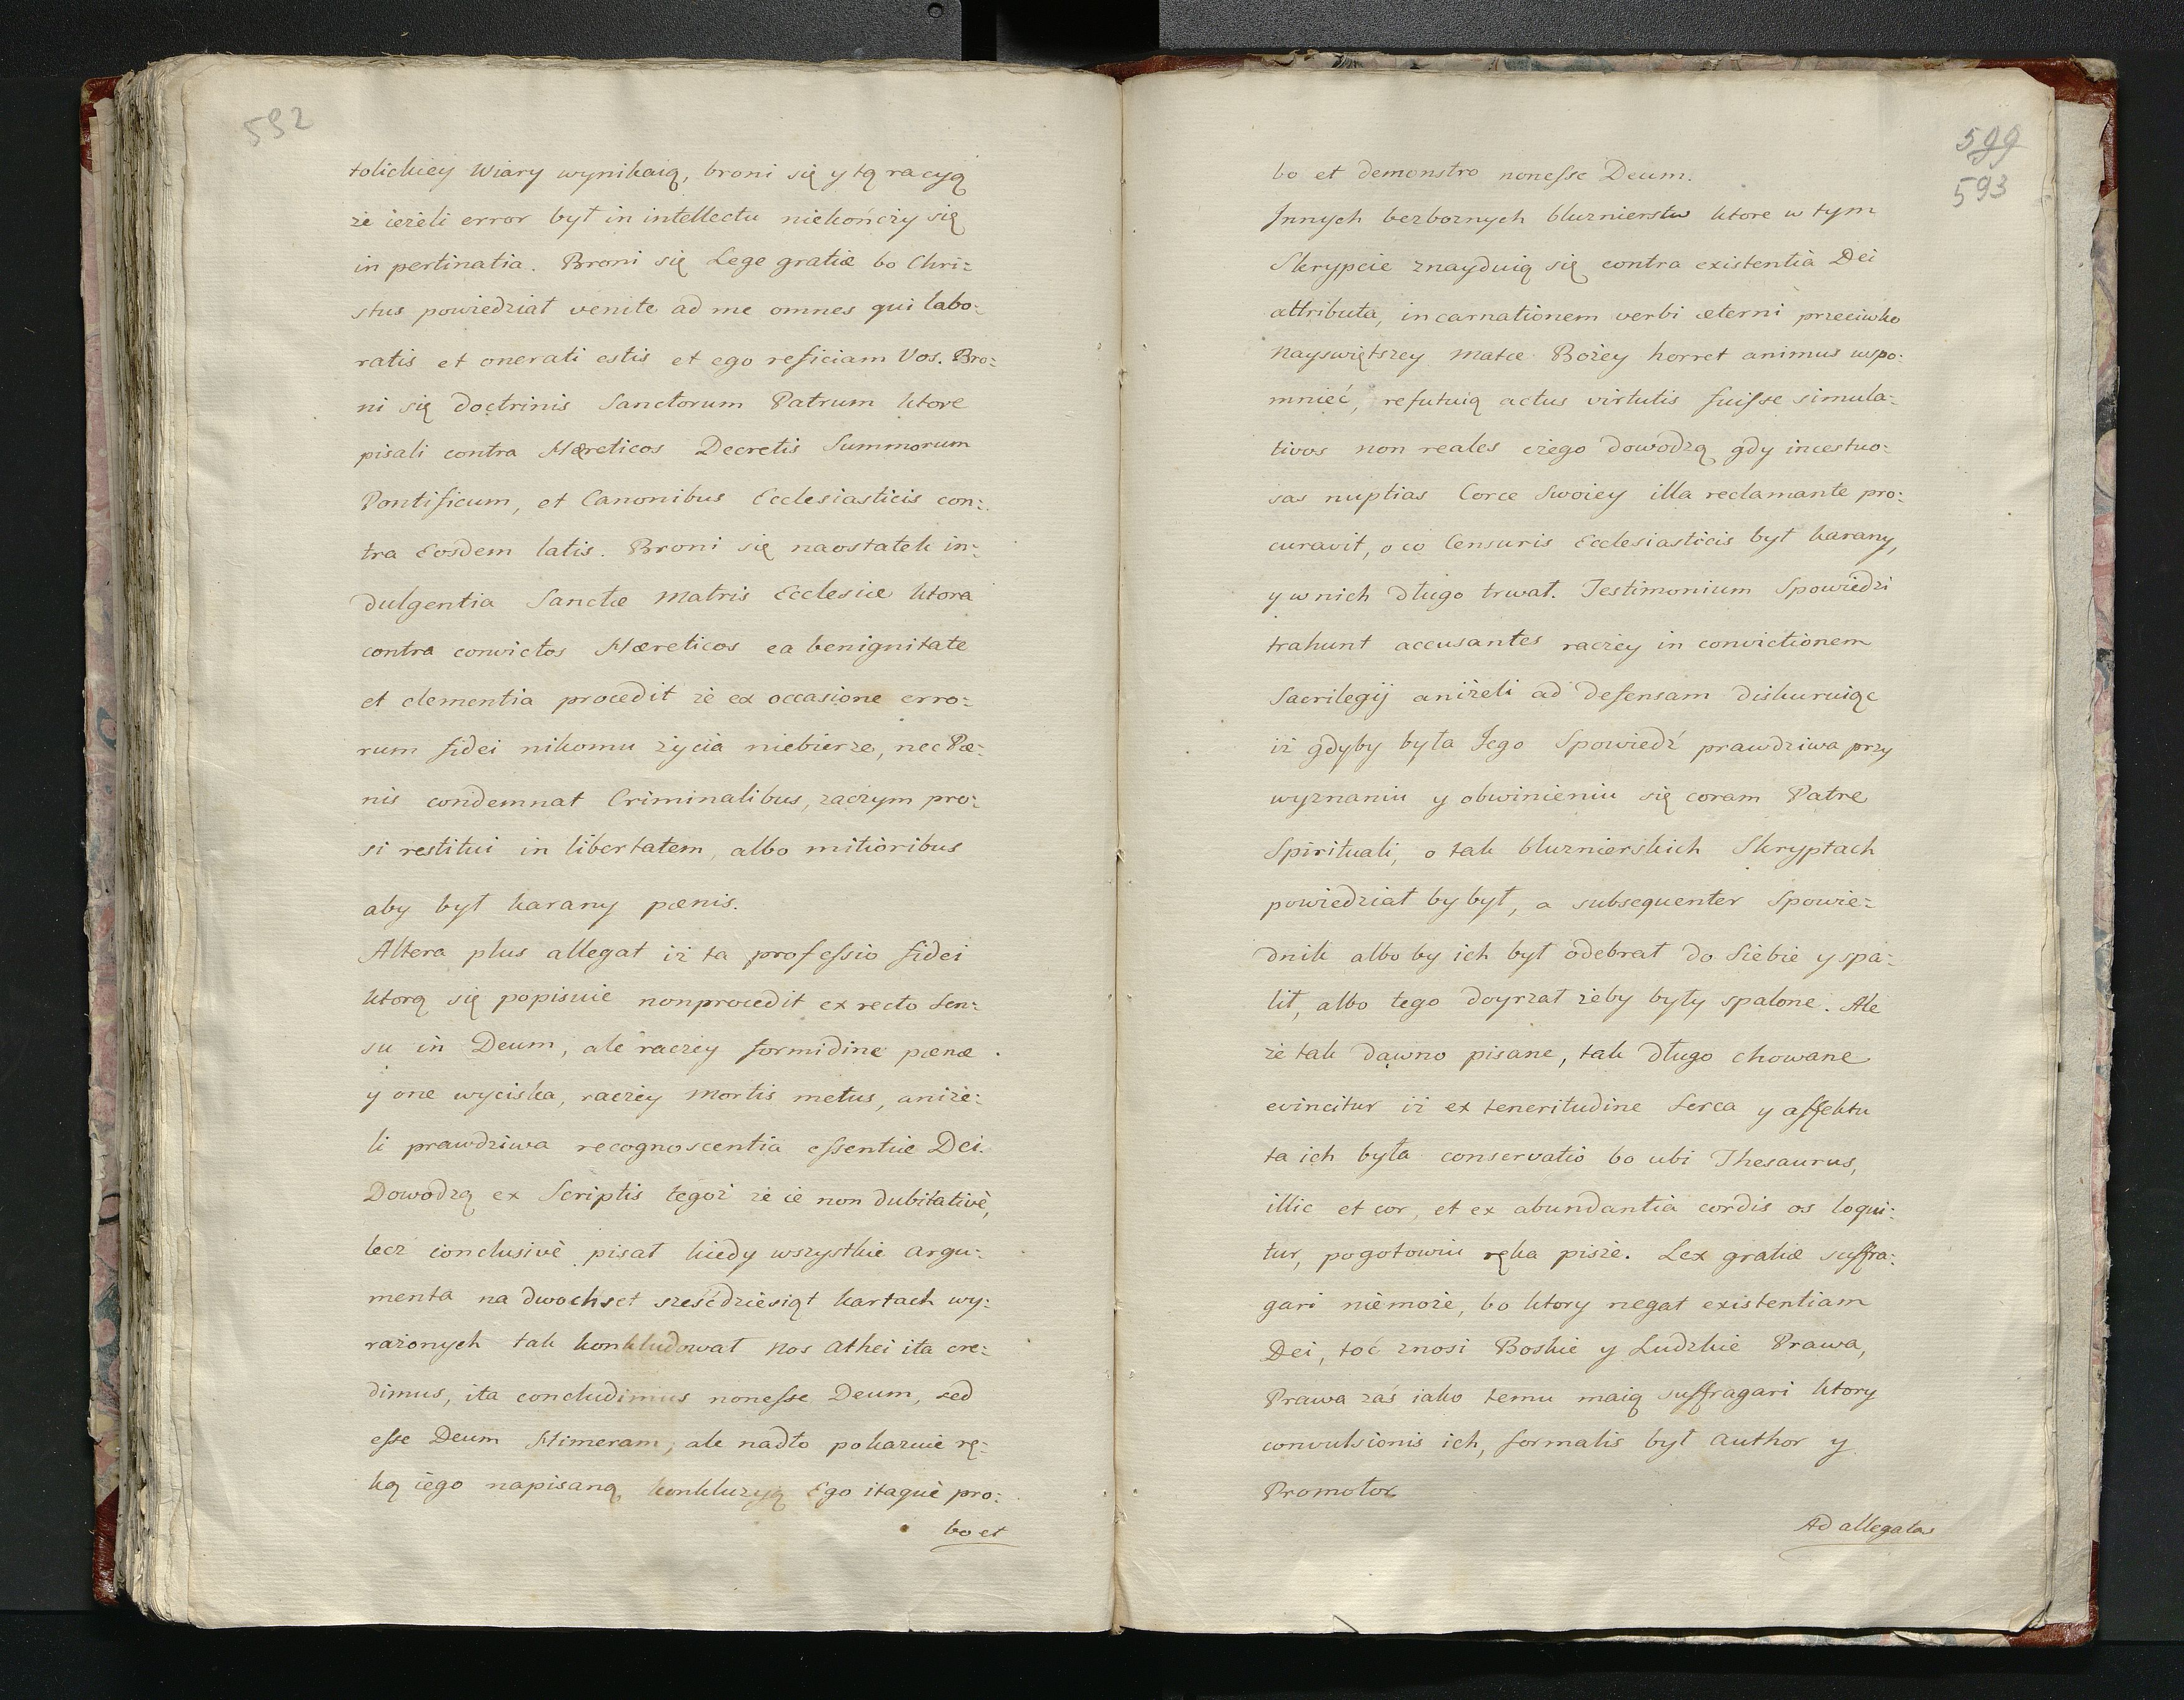 592
tolickiey Wiary wynikaią, broni się y tą racyą
że ieżeli error był in intellectu niekończy się
in pertinatia. Broni się Lege gratiæ bo Chri:
stus powiedział venite ad me omnes qui labo:
ratis et onerati estis et ego reficiam Vos. Bro:
ni się doctrinis Sanctorum Patrum ktore
pisali contra Hæreticos Decretis Summorum
Pontificum, et Canonibus Ecclesiasticis con:
tra Eosdem latis. Broni się naostatek in:
dulgentia Sanctæ Matris Ecclesiæ ktora
contra convictos Hæreticos ea benignitate
et clementia procedit że ex occasione erro:
rum fidei nikomu życia niebierze, nec Pæ:
nis condemnat Criminalibus, zaczym pro:
si restitui in libertatem, albo mitioribus
aby był karany pænis.
Altera plus allegat iż ta professio fidei
ktorą się popisuie nonprocedit ex recto Sen:
su in Deum, ale raczey formidine pænæ
y one wyciska, raczey mortis metus, aniże:
li prawdziwa recognoscentia essentiæ Dei.
Dowodzą ex Scriptis tegoż że ie non dubitativè,
lecz conclusivè pisał kiedy wszystkie argu:
menta na dwochset sześćdziesiąt kartach wy:
rażonych tak konkludował nos Athei ita cre:
dimus, ita concludimus nonesse Deum, sed
esse Deum Himeram; ale nadto pokazuie rę:
ką iego napisaną konkluzyą Ego itaquè pro:
bo et
599
593
bo et demonstro nonesse Deum.
Innych bezbożnych bluznierstw ktore w tym
Skrypcie znayduią się contra existentia Dei
attributa, incarnationem verbi æterni przeciwko
Nayświętszey Matce Bożey horret animus wspo:
mnieć, refutuią actus virtutis fuisse simula:
tivos non reales czego dowodzą gdy incestuo:
sas nuptias Corce Swoiey illa reclamante pro:
curavit, o co Censuris Ecclesiasticis był karany,
y w nich długo trwał. Testimonium Spowiedzi
trahunt accusantes raczey in convictionem
Sacrilegij aniżeli ad defensam diskuruiąc
iż gdyby była Jego Spowiedź prawdziwa przy
wyznaniu y obwinieniu się coram Patre
Spirituali, o tak bluznierskich Skryptach
powiedziałby był, a subsequenter Spowie:
dnik albo by ich był odebrał do Siebie y spa:
lił, albo tego doyrzał żeby były spalone. Ale
że tak dawno pisane, tak długo chowane
evincitur iż ex teneritudine Serca y affektu
ta ich była conservatio bo ubi Thesaurus,
illic et cor, et ex abundantia cordis os loqui:
tur, pogotowiu ręka pisze. Lex gratiæ suffra:
gari niemoże, bo ktory negat existentiam
Dei, toć znosi Boskie y Ludzkie Prawa,
Prawa zaś iako temu maią suffragari ktory
convulsionis ich, formalis był Author y
Promotor
Ad allegatas